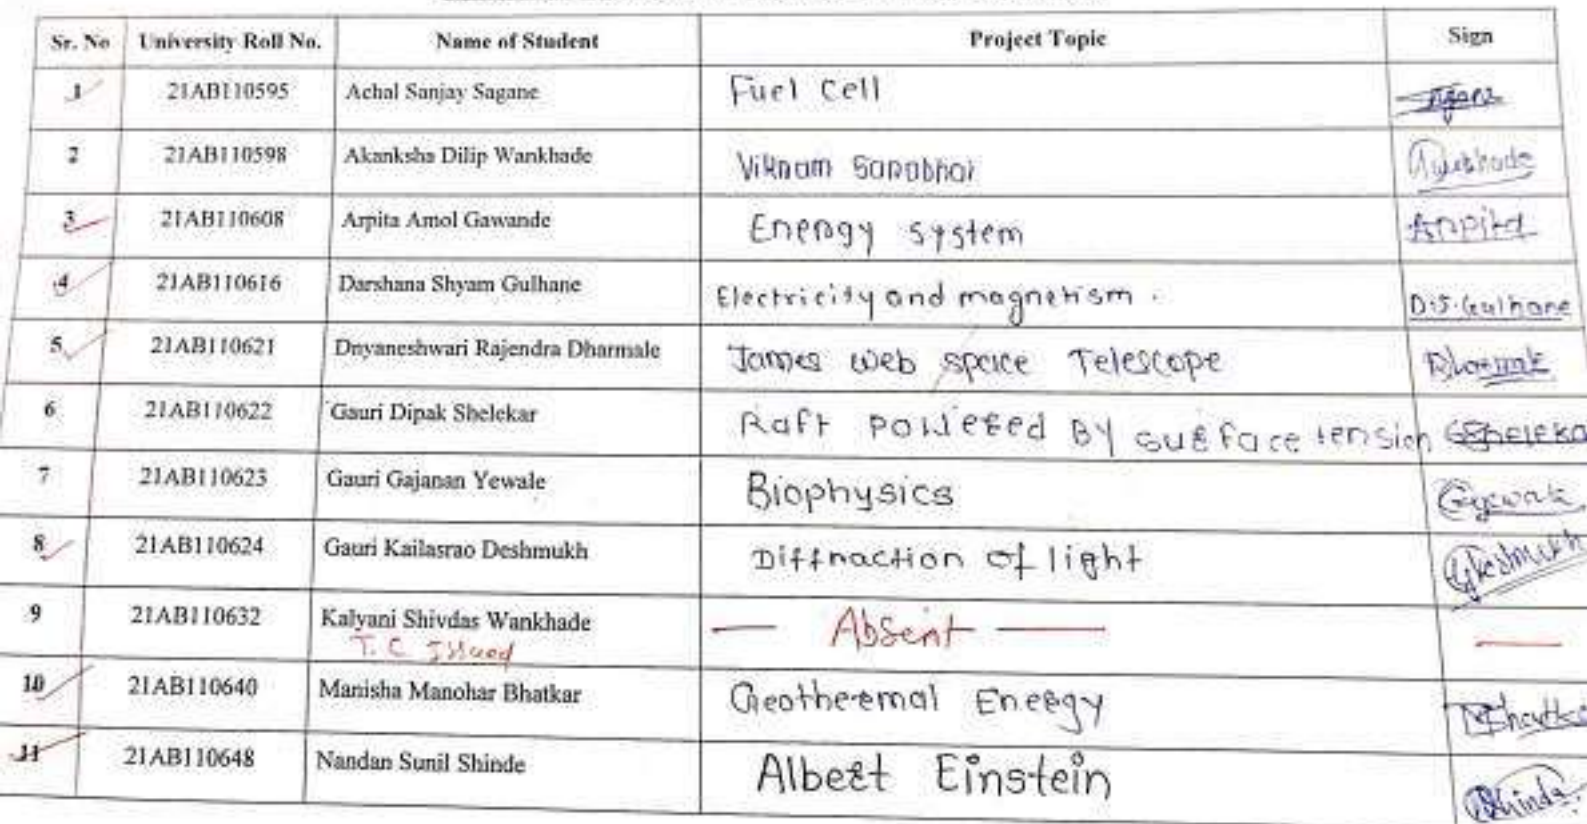 Sr. No University Roll No. Name of Student Project Topic Sign
1 21AB110595 Achal Sanjay Sagane Fuel Cell
2 21AB110598 Akanksha Dilip Wankhade Vikram Sarabhai
3 21AB110608 Arpita Amol Gawande Energy system Arpita
4 21AB110616 Darshana Shyam Gulhane Electricity and magnetism. D.S. Gulhane
5 21AB110621 Dnyaneshwari Rajendra Dharmale James web space Telescope
6 21AB110622 Gauri Dipak Shelekar Raft powered By surface tension
7 21AB110623 Gauri Gajanan Yewale Biophysics
8 21AB110624 Gauri Kailasrao Deshmukh Diffraction of light
9 21AB110632 Kalyani Shivdas Wankhade — Absent —
T.C Issued
10 21AB110640 Manisha Manohar Bhatkar Geothermal Energy
11 21AB110648 Nandan Sunil Shinde Albert Einstein